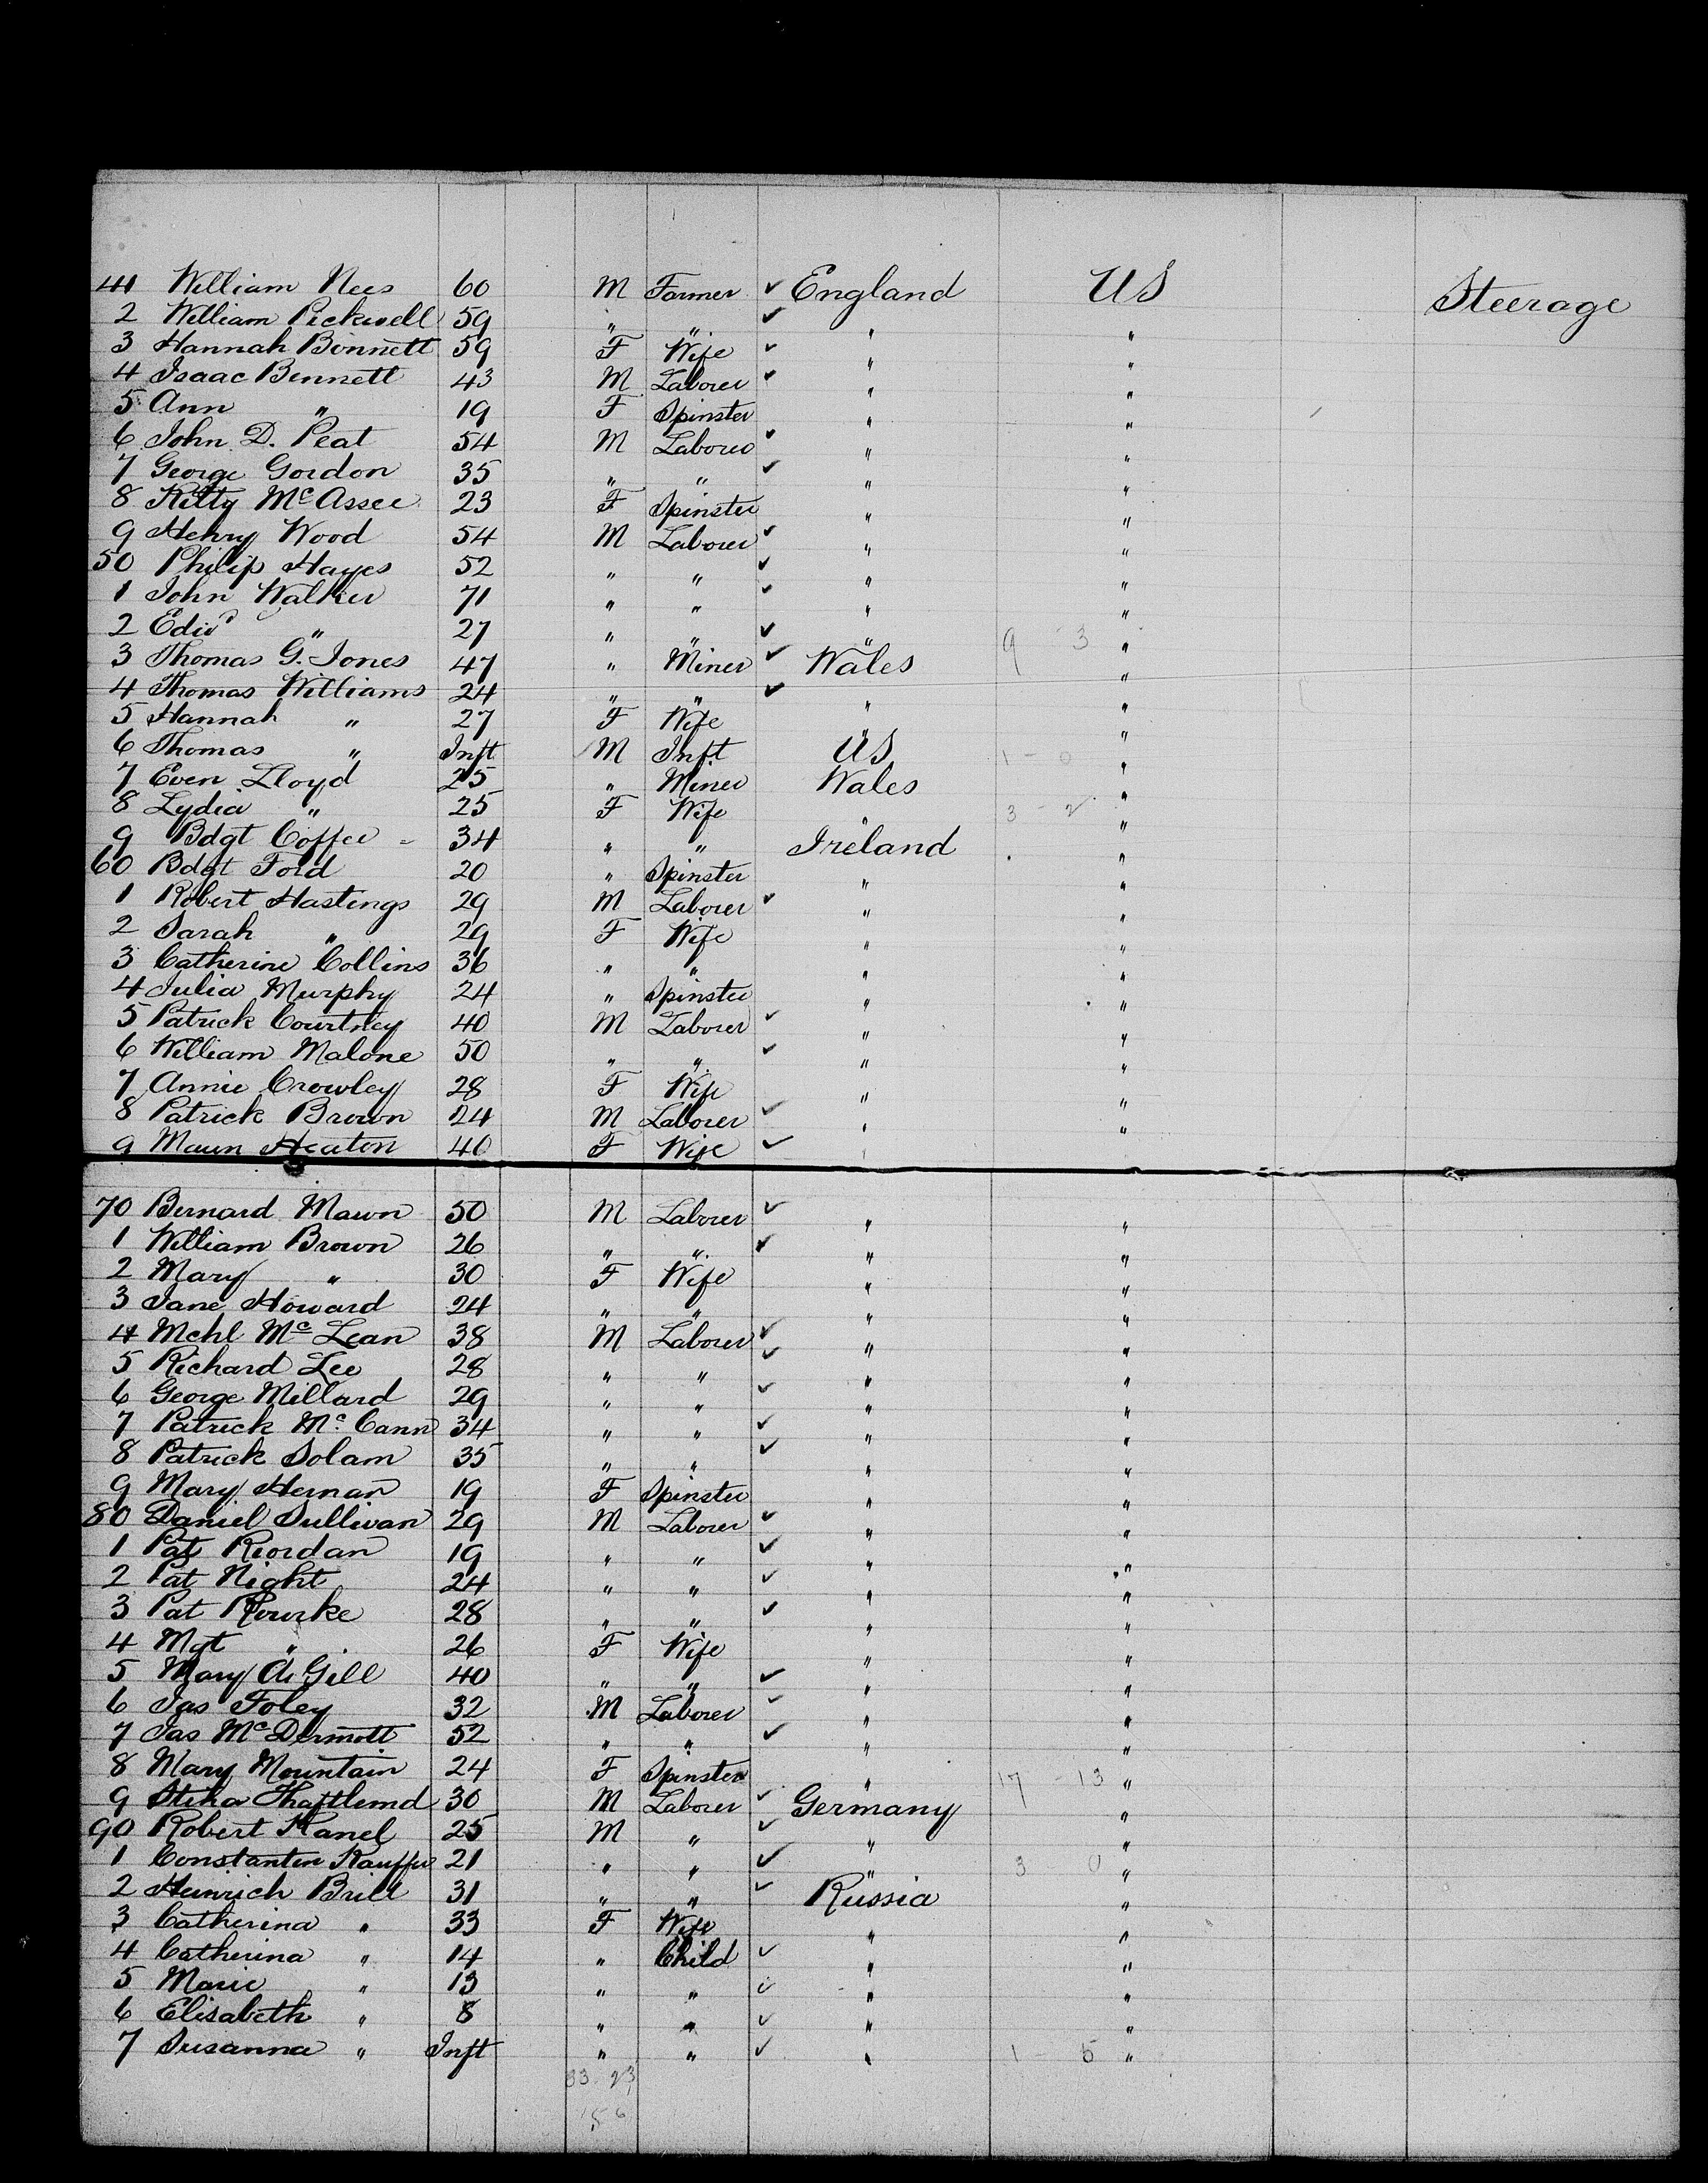 41 William Nees 60 M Farmer ✓ England US Steerage
2 William Pickwell 59 " " ✓ " "
3 Hannah Binnett 59 F Wife ✓ " "
4 Isaac Bennett 43 M Laborer ✓ " "
5 Ann " 19 F Spinster " "
6 John D. Peat 54 M Laborer ✓ " "
7 George Gordon 35 " " ✓ " "
8 Kitty McAssee 23 F Spinster " "
9 Henry Wood 54 M Laborer ✓ " "
50 Philip Hayes 52 " " ✓ " "
1 John Walker 71 " " ✓ " "
2 Edwd " 27 " " ✓ " 9 - 3 "
3 Thomas G. Jones 47 " Miner ✓ Wales "
4 Thomas Williams 24 " " ✓ " "
5 Hannah " 27 F Wife " "
6 Thomas " Inft M Inft US 1 - 0 "
7 Even Lloyd 25 " Miner Wales "
8 Lydia " 25 F Wife " 3 - 2 "
9 Bdgt Coffee 34 " " Ireland "
60 Bdgt Ford 20 " Spinster " "
1 Robert Hastings 29 M Laborer ✓ " "
2 Sarah " 29 F Wife " "
3 Catherine Collins 36 " " " "
4 Julia Murphy 24 " Spinster " "
5 Patrick Courtney 40 M Laborer ✓ " "
6 William Malone 50 " " ✓ " "
7 Annie Crowley 28 F Wife " "
8 Patrick Brown 24 M Laborer ✓ " "
9 Maun Heaton 40 F Wife ✓ "
70 Bernard Mawn 50 M Laborer ✓ " "
1 William Brown 26 " " ✓ " "
2 Mary " 30 F Wife " "
3 Jane Howard 24 " " " "
4 Mchl McLean 38 M Laborer ✓ " "
5 Richard Lee 28 " " ✓ " "
6 George Millard 29 " " ✓ " "
7 Patrick McCann 34 " " ✓ " "
8 Patrick Solam 35 " " ✓ " "
9 Mary Hernan 19 F Spinster " "
80 Daniel Sullivan 29 M Laborer ✓ " "
1 Pat Riordan 19 " " ✓ " "
2 Pat Night 24 " " ✓ " "
3 Pat Rourke 28 " " ✓ " "
4 Mgt " 26 F Wife " "
5 Mary A. Gill 40 " " ✓ " "
6 Jas Foley 32 M Laborer ✓ " "
7 Jas McDermott 52 " " ✓ " "
8 Mary Mountain 24 F Spinster " 17 - 13 "
9 30 M Laborer ✓ Germany "
90 Robert Kanel 25 M " ✓ " "
1 Constantin 21 " " ✓ " 3 0 "
2 Heinrich Brill 31 " " ✓ Russia "
3 Catherina " 33 F Wife " "
4 Catherina " 14 " Child ✓ " "
5 Marie " 13 " " ✓ " "
6 Elisabeth " 8 " " ✓ " "
7 Susanna " Inft " " ✓ " 1 - 5 "
33 - 23
56